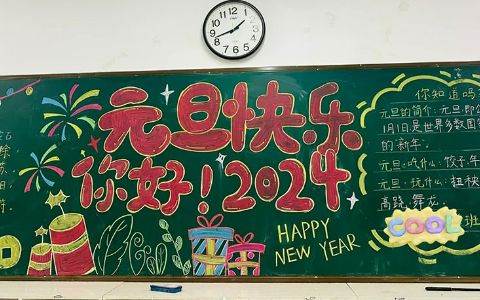 元旦快乐
你好！2024
HAPPY
NEW YEAR
你知道吗
元旦的简介：元旦，即公
1月1日是世界多数国家
的新年。
元旦：吃什么：饺子，年
元旦：玩什么：扭秧
高跷、舞龙
COOL
班